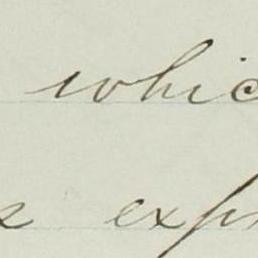 whic
s exp